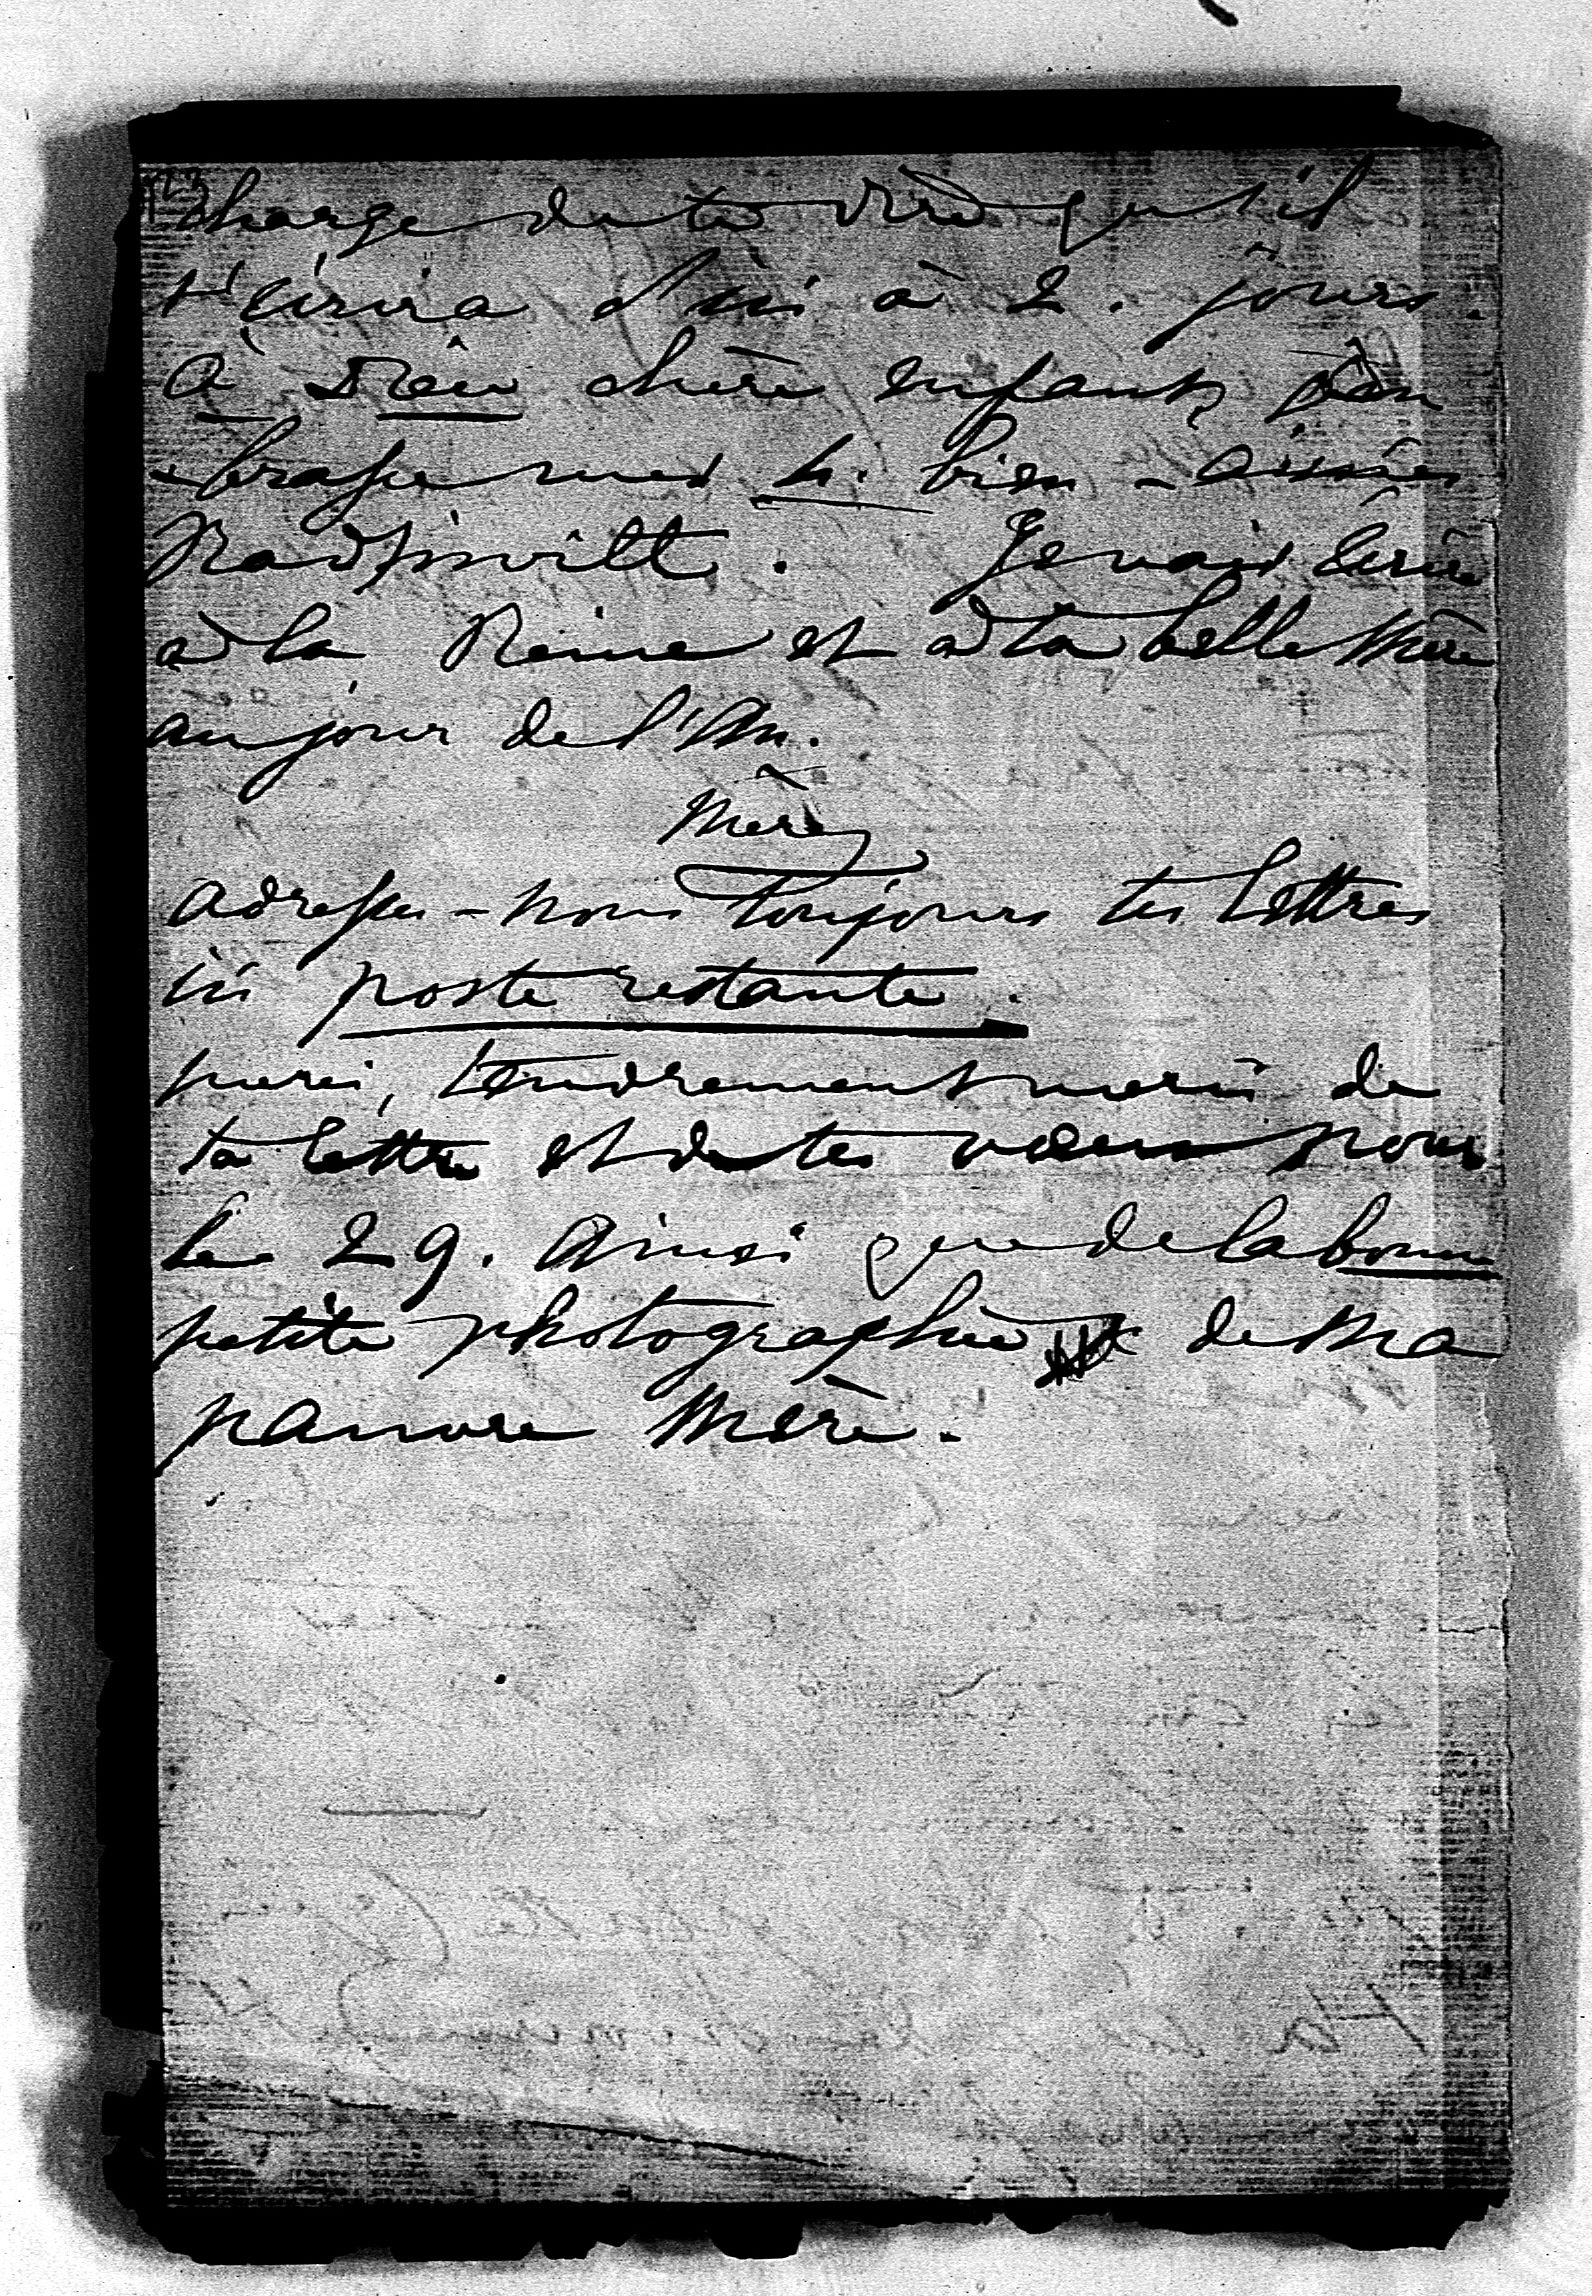 charge de te dire qu'il
t'écrira d'ici à 2. jours.
à Dieu chère enfant, j'em
-brasse mes 4. bien-aimés
Radziwill. Je vais écrire
à la Reine et à ta belle Mère
au jour de l'An.
Mère
adresse-nous toujours tes lettres
ici poste restante.
merci, tendrement merci de
ta lettre et de tes vœux pour
le 29. Ainsi que de la bonne
petite photographie de Ma
pauvre Mère.